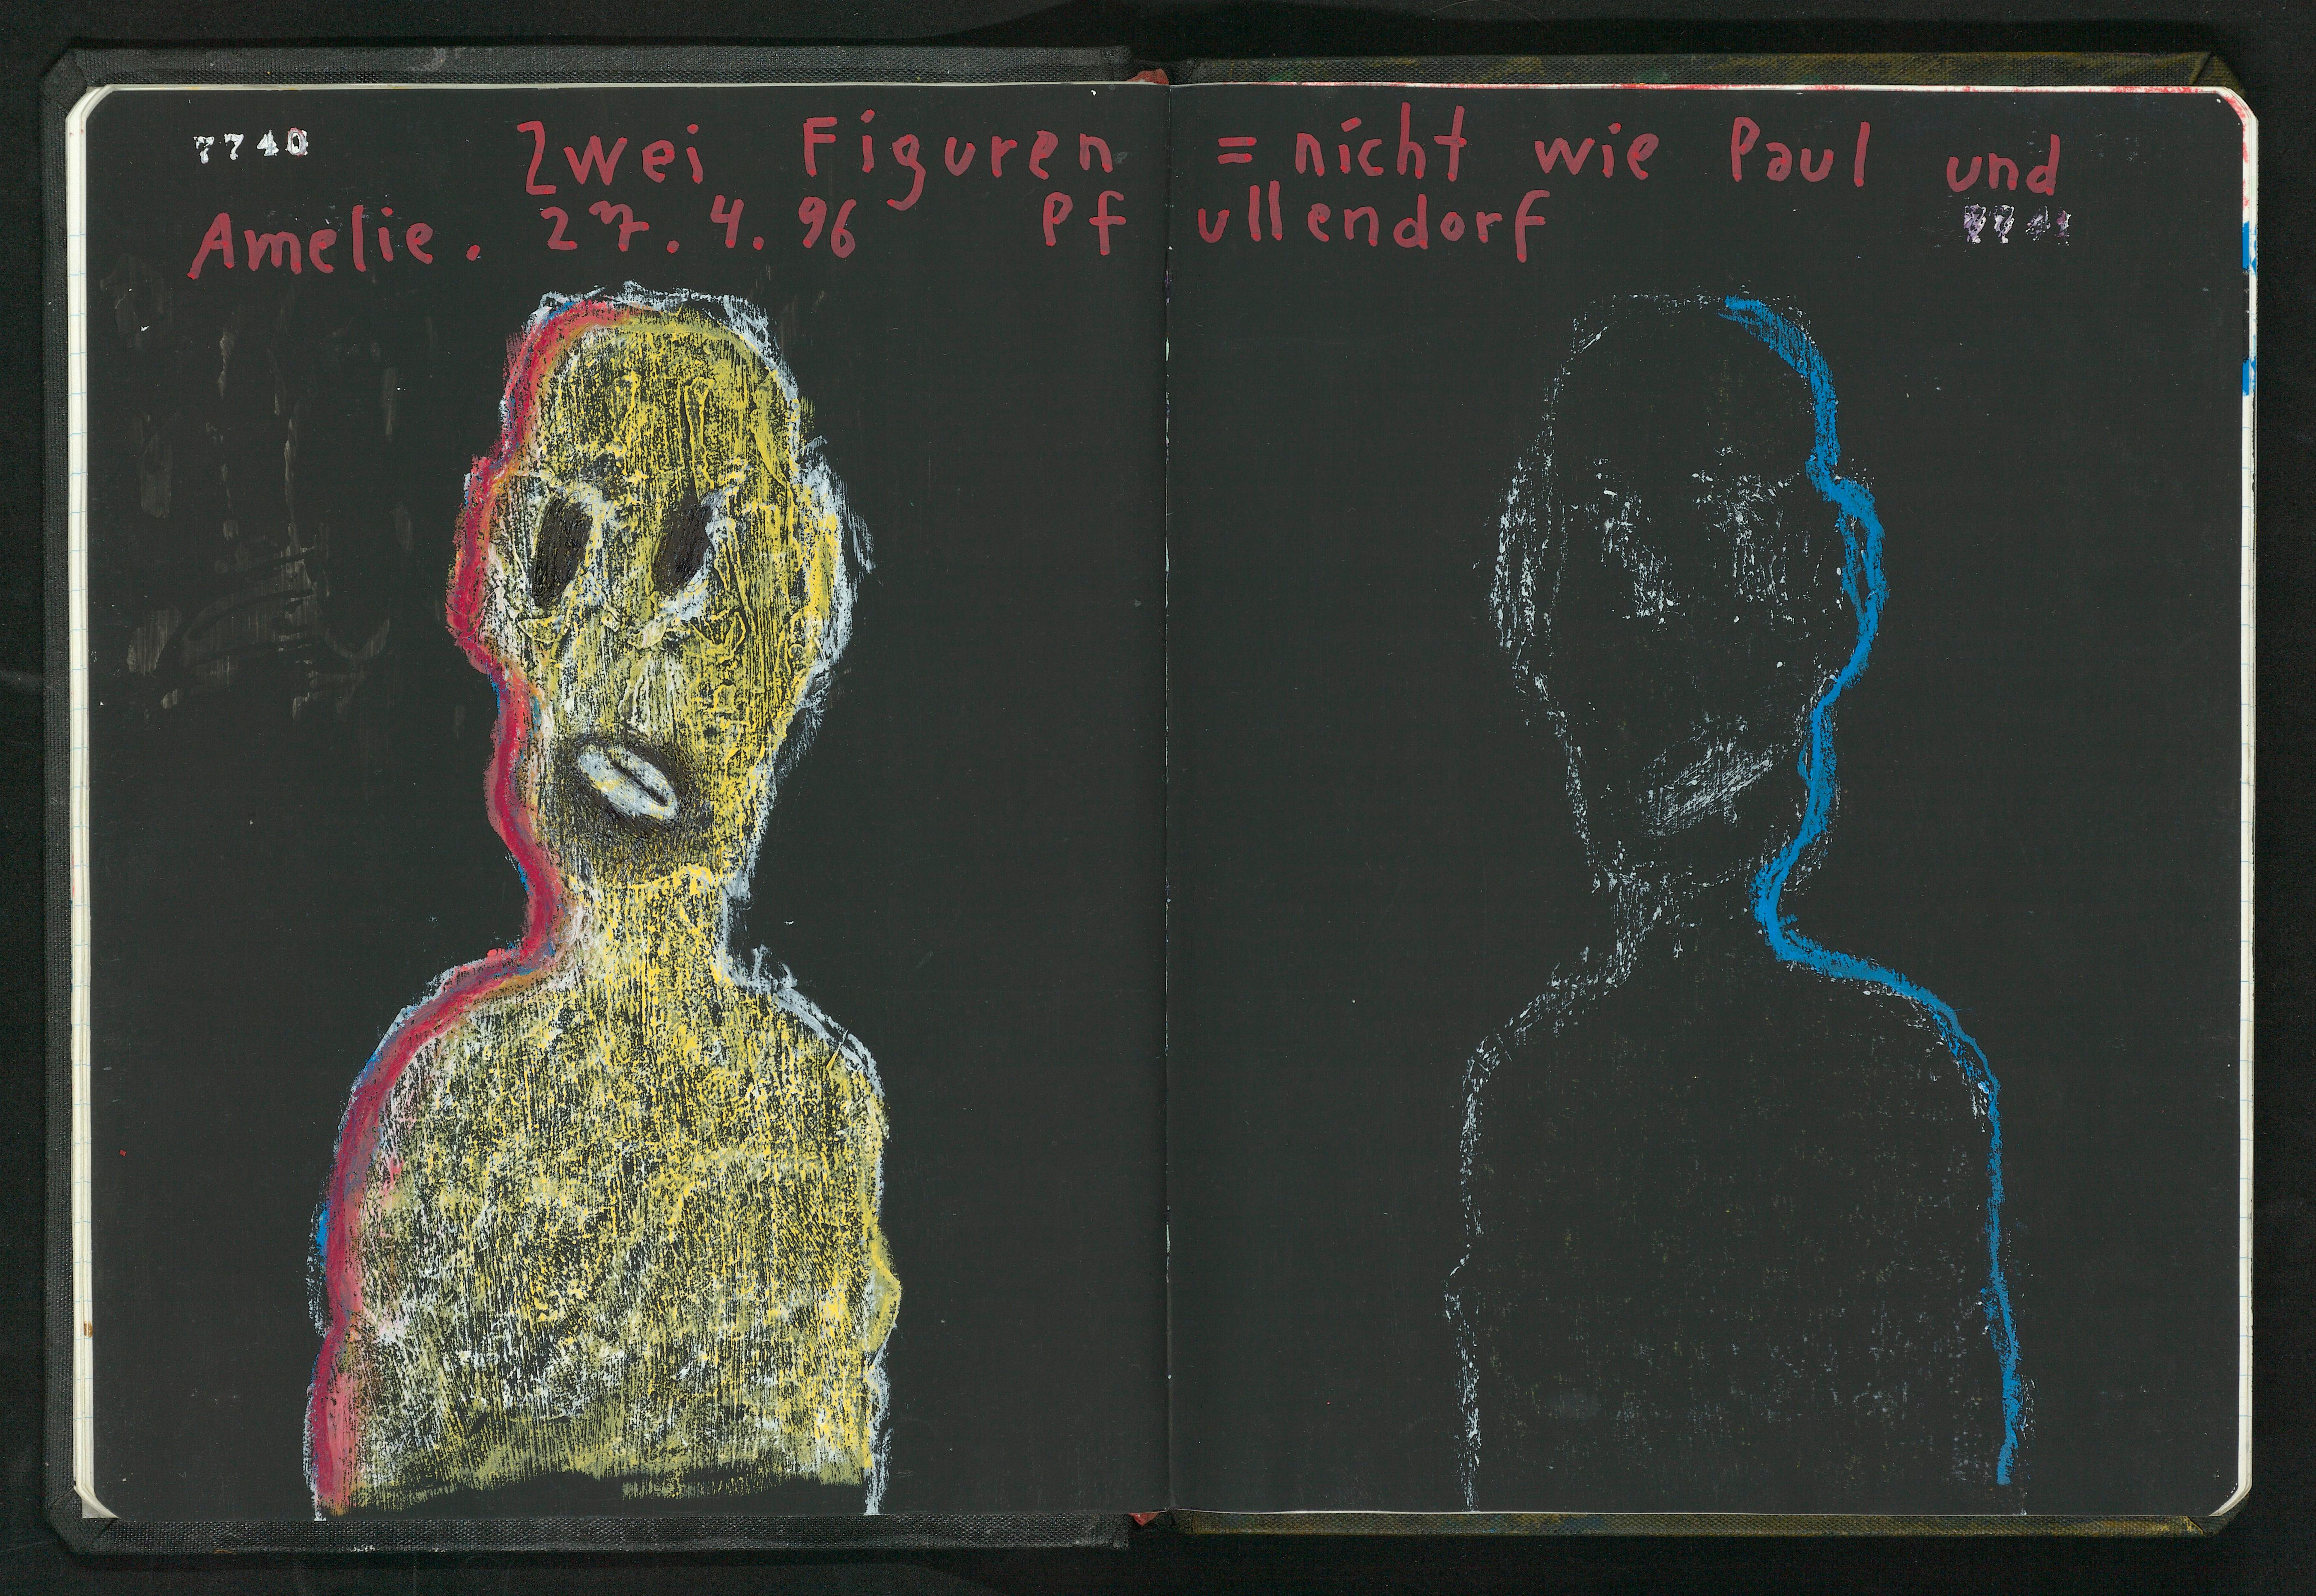 7740
Zwei Figuren = nicht wie Paul und
Amelie. 27. 4. 96 Pfullendorf
7741